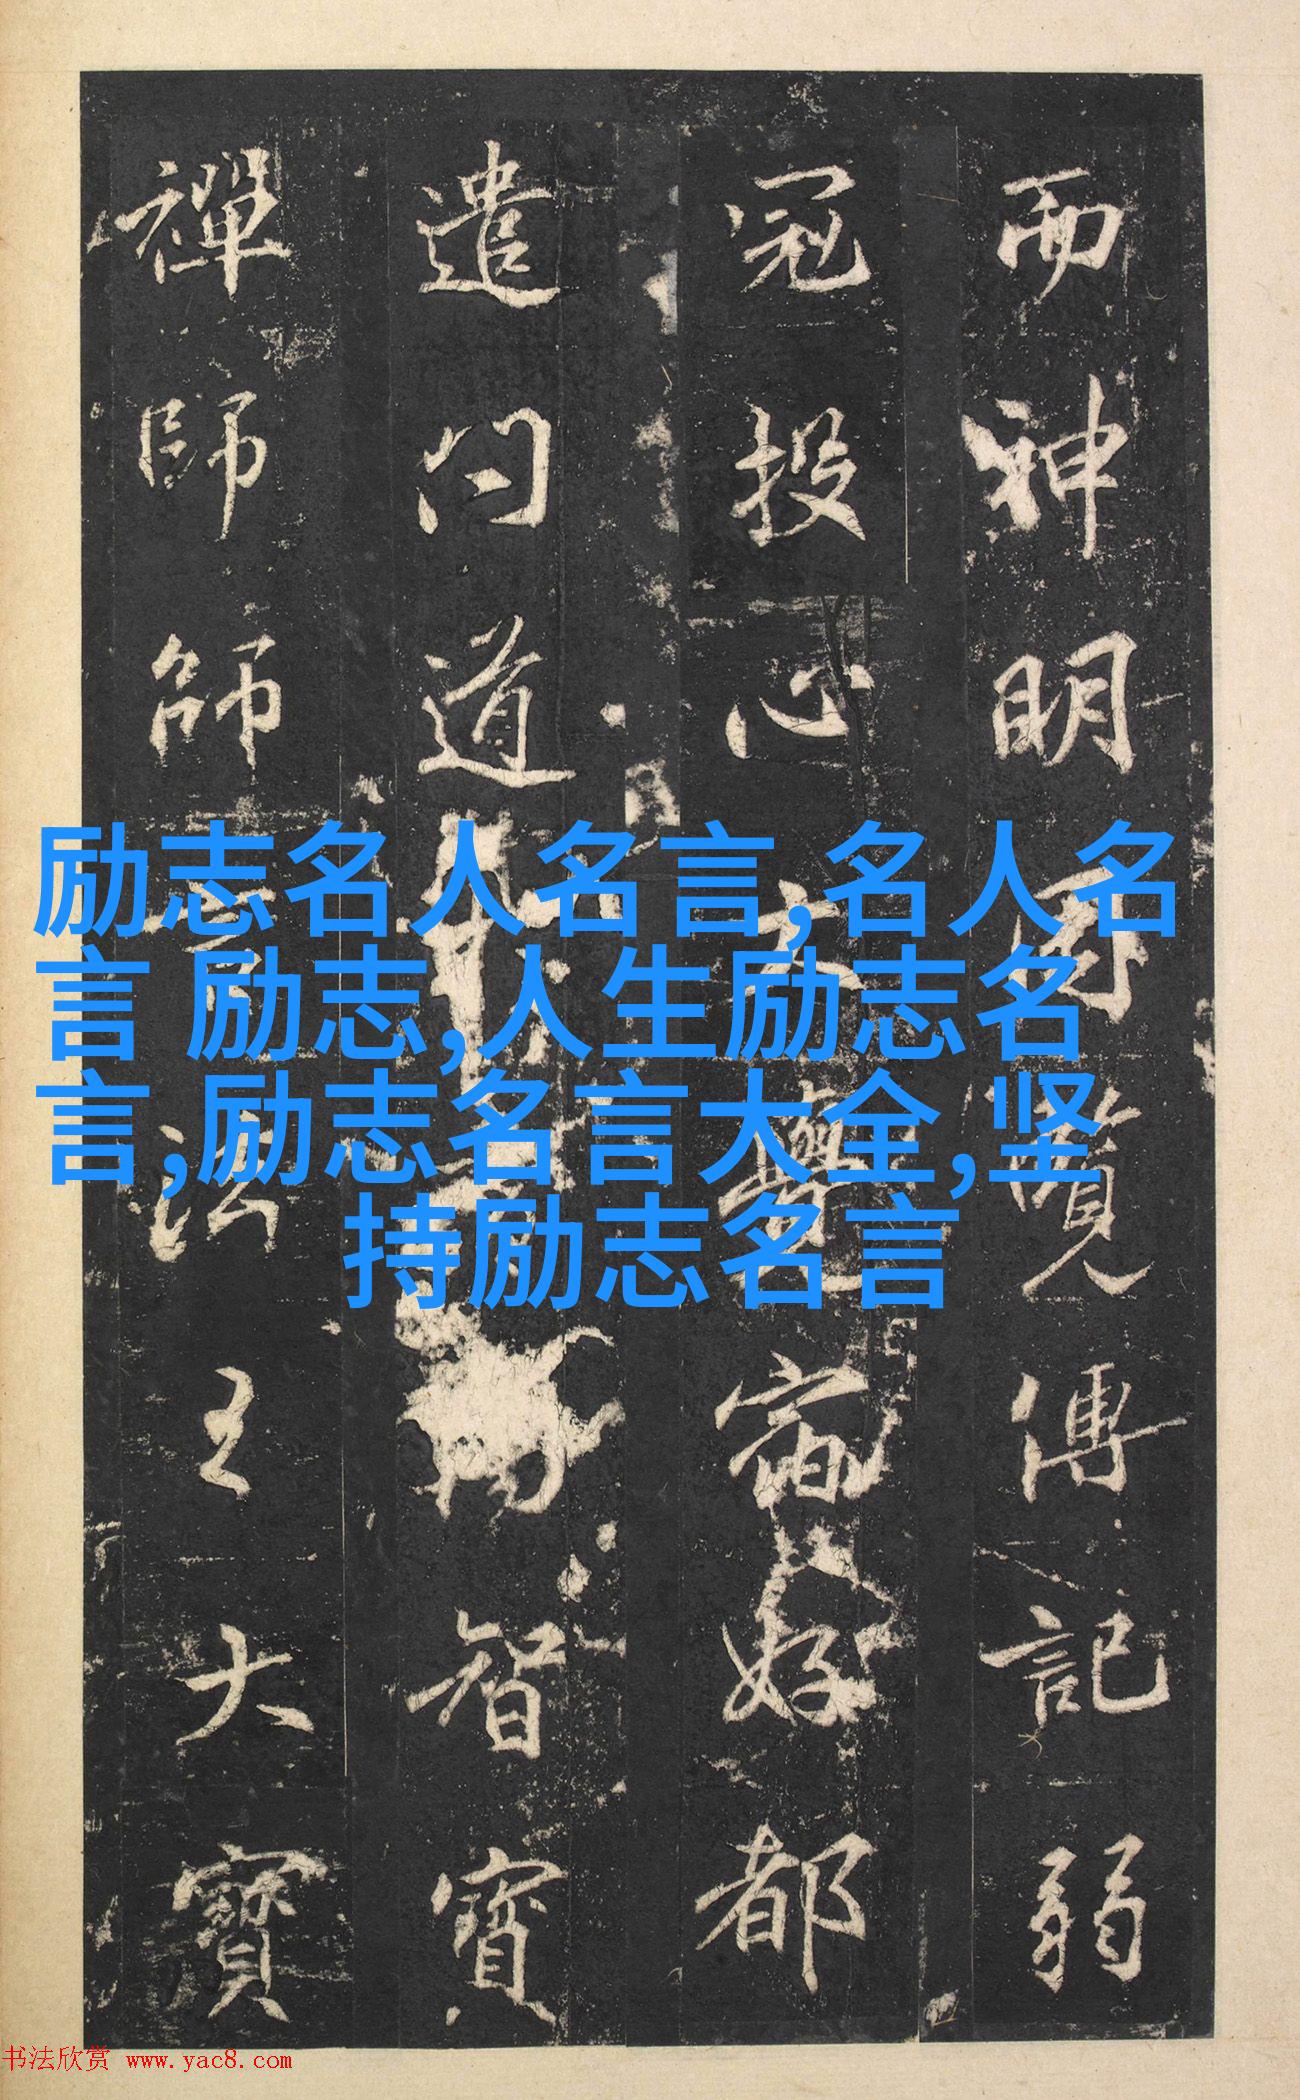 而神明周覽傳記弱
冠投心大覺宿好都
遣問道智寶
禪師師法王大寶
励志名人名言,名人名
言 励志,人生励志名
言,励志名言大全,坚
持励志名言
书法欣赏 www.yac8.com